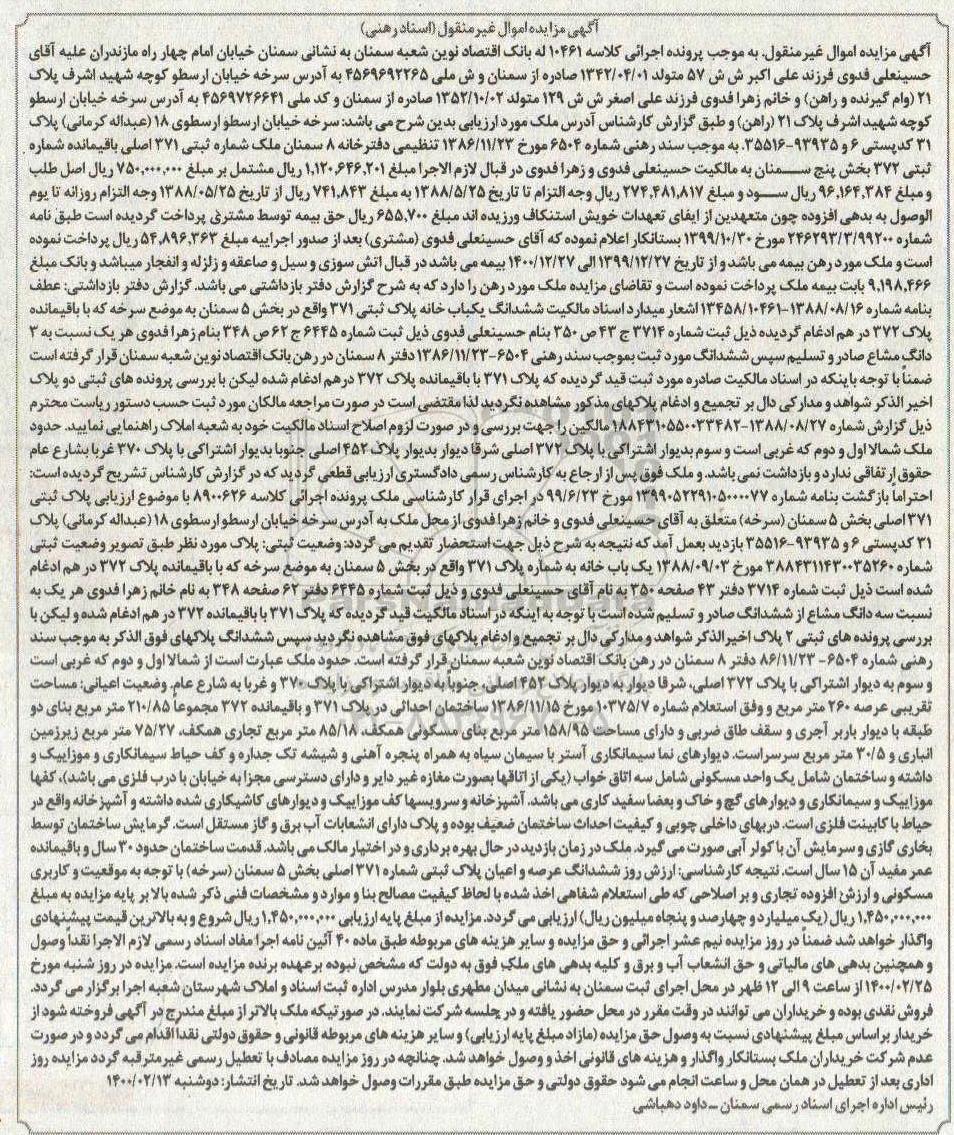 آگهی مزایده اموال غیرمنقول (اسناد رهنی)
آگهی مزایده اموال غیرمنقول. به موجب پرونده اجرائی کلاسه ۱۰۴۶۱ له بانک اقتصاد نوین شعبه سمنان به نشانی سمنان خیابان امام چهار راه مازندران علیه آقای
حسینعلی فدوی فرزند علی اکبر ش ش ۵۷ متولد ۱۳۴۲/۰۴/۰۱ صادره از سمنان و ش ملی ۴۵۶۹۶۹۲۲۶۵ به آدرس سرخه خیابان ارسطو کوچه شهید اشرف پلاک
۲۱ (وام گیرنده و راهن) و خانم زهرا فدوی فرزند علی اصغر ش ش ۱۲۹ متولد ۱۳۵۲/۱۰/۰۲ صادره از سمنان و کد ملی ۴۵۶۹۷۲۶۶۴۱ به آدرس سرخه خیابان ارسطو
کوچه شهید اشرف پلاک ۲۱ (راهن) و طبق گزارش کارشناس آدرس ملک مورد ارزیابی بدین شرح می باشد: سرخه خیابان ارسطو ارسطوی ۱۸ (عبداله کرمانی) پلاک
۳۱ کدپستی ۶ و ۹۳۹۳۵-۳۵۵۱۶. به موجب سند رهنی شماره ۶۵۰۴ مورخ ۱۳۸۶/۱۱/۲۳ تنظیمی دفترخانه ۸ سمنان ملک شماره ثبتی ۳۷۱ اصلی باقیمانده شماره
ثبتی ۳۷۲ بخش پنج سمنان به مالکیت حسینعلی فدوی و زهرا فدوی در قبال لازم الاجرا مبلغ ۱,۱۲۰,۶۴۶,۲۰۱ ریال مشتمل بر مبلغ ۷۵۰,۰۰۰,۰۰۰ ریال اصل طلب
و مبلغ ۹۶,۱۶۴,۳۸۴ ریال سود و مبلغ ۲۷۴,۴۸۱,۸۱۷ ریال وجه التزام تا تاریخ ۱۳۸۸/۵/۲۵ به مبلغ ۷۴۱,۸۴۳ ریال از تاریخ ۱۳۸۸/۰۵/۲۵ وجه التزام روزانه تا یوم
الوصول به بدهی افزوده چون متعهدین از ایفای تعهدات خویش استنکاف ورزیده اند مبلغ ۶۵۵,۷۰۰ ریال حق بیمه توسط مشتری پرداخت گردیده است طبق نامه
شماره ۲۴۶۲۹۳/۳/۹۹۲۰۰ مورخ ۱۳۹۹/۱۰/۳۰ بستانکار اعلام نموده که آقای حسینعلی فدوی (مشتری) بعد از صدور اجراییه مبلغ ۵۴,۸۹۶,۳۶۳ ریال پرداخت نموده
است و ملک مورد رهن بیمه می باشد و از تاریخ ۱۳۹۹/۱۲/۲۷ الی ۱۴۰۰/۱۲/۲۷ بیمه می باشد در قبال اتش سوزی و سیل و صاعقه و زلزله و انفجار میباشد و بانک مبلغ
۹,۱۹۸,۴۶۶ بابت بیمه ملک پرداخت نموده است و تقاضای مزایده ملک مورد رهن را دارد که به شرح گزارش دفتر بازداشتی می باشد. گزارش دفتر بازداشتی: عطف
بنامه شماره ۱۳۸۸/۰۸/۱۶-۱۳۴۵۸/۱۰۴۶۱ اشعار میدارد اسناد مالکیت ششدانگ یکباب خانه پلاک ثبتی ۳۷۱ واقع در بخش ۵ سمنان به موضع سرخه که با باقیمانده
پلاک ۳۷۲ در هم ادغام گردیده ذیل ثبت شماره ۳۷۱۴ ج ۴۳ ص ۳۵۰ بنام حسینعلی فدوی ذیل ثبت شماره ۶۴۴۵ ج ۶۲ ص ۳۴۸ بنام زهرا فدوی هر یک نسبت به ۳
دانگ مشاع صادر و تسلیم سپس ششدانگ مورد ثبت بموجب سند رهنی ۶۵۰۴-۱۳۸۶/۱۱/۲۳ دفتر ۸ سمنان در رهن بانک اقتصاد نوین شعبه سمنان قرار گرفته است
ضمناً با توجه باینکه در اسناد مالکیت صادره مورد ثبت قید گردیده که پلاک ۳۷۱ با باقیمانده پلاک ۳۷۲ درهم ادغام شده لیکن با بررسی پرونده های ثبتی دو پلاک
اخیر الذکر شواهد و مدارکی دال بر تجمیع و ادغام پلاکهای مذکور مشاهده نگردید لذا مقتضی است در صورت مراجعه مالکان مورد ثبت حسب دستور ریاست محترم
ذیل گزارش شماره ۱۳۸۸/۰۸/۲۷-۱۸۸۴۳۱۰۵۵۰۰۳۳۴۸۲ مالکین را جهت بررسی و در صورت لزوم اصلاح اسناد مالکیت خود به شعبه املاک راهنمایی نمایید. حدود
ملک شمالا اول و دوم که غربی است و سوم بدیوار اشتراکی با پلاک ۳۷۲ اصلی شرقا دیوار بدیوار پلاک ۴۵۲ اصلی جنوبا بدیوار اشتراکی با پلاک ۳۷۰ غربا بشارع عام
حقوق ارتفاقی ندارد و بازداشت نمی باشد. و ملک فوق پس از ارجاع به کارشناس رسمی دادگستری ارزیابی قطعی گردید که در گزارش کارشناس تشریح گردیده است:
احتراماً بازگشت بنامه شماره ۱۳۹۹۰۵۲۲۹۱۰۵۰۰۰۰۷۷ مورخ ۹۹/۶/۲۳ در اجرای قرار کارشناسی ملک پرونده اجرائی کلاسه ۸۹۰۰۶۲۶ با موضوع ارزیابی پلاک ثبتی
۳۷۱ اصلی بخش ۵ سمنان (سرخه) متعلق به آقای حسینعلی فدوی و خانم زهرا فدوی از محل ملک به آدرس سرخه خیابان ارسطو ارسطوی ۱۸ (عبداله کرمانی) پلاک
۳۱ کدپستی ۶ و ۹۳۹۳۵-۳۵۵۱۶ بازدید بعمل آمد که نتیجه به شرح ذیل جهت استحضار تقدیم می گردد: وضعیت ثبتی: پلاک مورد نظر طبق تصویر وضعیت ثبتی
شماره ۳۸۸۴۳۱۱۴۳۰۰۳۵۲۶۰ مورخ ۱۳۸۸/۰۹/۰۳ یک باب خانه به شماره پلاک ۳۷۱ واقع در بخش ۵ سمنان به موضع سرخه که با باقیمانده پلاک ۳۷۲ در هم ادغام
شده است ذیل ثبت شماره ۳۷۱۴ دفتر ۴۳ صفحه ۳۵۰ به نام آقای حسینعلی فدوی و ذیل ثبت شماره ۶۴۴۵ دفتر ۶۲ صفحه ۳۴۸ به نام خانم زهرا فدوی هر یک به
نسبت سه دانگ مشاع از ششدانگ صادر و تسلیم شده است با توجه به اینکه در اسناد مالکیت قید گردیده که پلاک ۳۷۱ با باقیمانده ۳۷۲ در هم ادغام شده و لیکن با
بررسی پرونده های ثبتی ۲ پلاک اخیرالذکر شواهد و مدارکی دال بر تجمیع و ادغام پلاکهای فوق مشاهده نگردید سپس ششدانگ پلاکهای فوق الذکر به موجب سند
رهنی شماره ۶۵۰۴- ۸۶/۱۱/۲۳ دفتر ۸ سمنان در رهن بانک اقتصاد نوین شعبه سمنان قرار گرفته است. حدود ملک عبارت است از شمالا اول و دوم که غربی است
و سوم به دیوار اشتراکی با پلاک ۳۷۲ اصلی، شرقا دیوار به دیوار پلاک ۴۵۲ اصلی، جنوباً به دیوار اشتراکی با پلاک ۳۷۰ و غربا به شارع عام. وضعیت اعیانی: مساحت
تقریبی عرصه ۲۶۰ متر مربع و وفق استعلام شماره ۱۰۳۷۵/۷ مورخ ۱۳۸۶/۱۱/۱۵ ساختمان احداثی در پلاک ۳۷۱ و باقیمانده ۳۷۲ مجموعاً ۲۱۰/۸۵ متر مربع بنای دو
طبقه با دیوار باربر آجری و سقف طاق ضربی و دارای مساحت ۱۵۸/۹۵ متر مربع بنای مسکونی همکف، ۸۵/۱۸ متر مربع تجاری همکف، ۷۵/۲۷ متر مربع زیرزمین
انباری و ۳۰/۵ متر مربع سرسراست. دیوارهای نما سیمانکاری آستر با سیمان سیاه به همراه پنجره آهنی و شیشه تک جداره و کف حیاط سیمانکاری و موزاییک و
داشته و ساختمان شامل یک واحد مسکونی شامل سه اتاق خواب (یکی از اتاقها بصورت مغازه غیر دایر و دارای دسترسی مجزا به خیابان با درب فلزی می باشد)، کفها
موزاییک و سیمانکاری و دیوارهای گچ و خاک و بعضا سفید کاری می باشد. آشپزخانه و سرویسها کف موزاییک و دیوارهای کاشیکاری شده داشته و آشپزخانه واقع در
حیاط با کابینت فلزی است. دربهای داخلی چوبی و کیفیت احداث ساختمان ضعیف بوده و پلاک دارای انشعابات آب برق و گاز مستقل است. گرمایش ساختمان توسط
بخاری گازی و سرمایش آن با کولر آبی صورت می گیرد. ملک در زمان بازدید در حال بهره برداری و در اختیار مالک می باشد. قدمت ساختمان حدود ۳۰ سال و باقیمانده
عمر مفید آن ۱۵ سال است. نتیجه کارشناسی: ارزش روز ششدانگ عرصه و اعیان پلاک ثبتی شماره ۳۷۱ اصلی بخش ۵ سمنان (سرخه) با توجه به موقعیت و کاربری
مسکونی و ارزش افزوده تجاری و بر اصلاحی که طی استعلام شفاهی اخذ شده با لحاظ کیفیت مصالح بنا و موارد و مشخصات فنی ذکر شده بالا بر پایه مزایده به مبلغ
۱,۴۵۰,۰۰۰,۰۰۰ ریال (یک میلیارد و چهارصد و پنجاه میلیون ریال) ارزیابی می گردد. مزایده از مبلغ پایه ارزیابی ۱,۴۵۰,۰۰۰,۰۰۰ ریال شروع و به بالاترین قیمت پیشنهادی
واگذار خواهد شد ضمناً در روز مزایده نیم عشر اجرائی و حق مزایده و سایر هزینه های مربوطه طبق ماده ۴۰ آئین نامه اجرا مفاد اسناد رسمی لازم الاجرا نقداً وصول
و همچنین بدهی های مالیاتی و حق انشعاب آب و برق و کلیه بدهی های ملک فوق به دولت که مشخص نبوده برعهده برنده مزایده است. مزایده در روز شنبه مورخ
۱۴۰۰/۰۲/۲۵ از ساعت ۹ الی ۱۲ ظهر در محل اجرای ثبت سمنان به نشانی میدان مطهری بلوار مدرس اداره ثبت اسناد و املاک شهرستان شعبه اجرا برگزار می گردد.
فروش نقدی بوده و خریداران می توانند در وقت مقرر در محل حضور یافته و در جلسه شرکت نمایند. در صورتیکه ملک بالاتر از مبلغ مندرج در آگهی فروخته شود از
خریدار براساس مبلغ پیشنهادی نسبت به وصول حق مزایده (مازاد مبلغ پایه ارزیابی) و سایر هزینه های مربوطه قانونی و حقوق دولتی نقدا اقدام می گردد و در صورت
عدم شرکت خریداران ملک بستانکار واگذار و هزینه های قانونی اخذ و وصول خواهد شد. چنانچه در روز مزایده مصادف با تعطیل رسمی غیرمترقبه گردد مزایده روز
اداری بعد از تعطیل در همان محل و ساعت انجام می شود حقوق دولتی و حق مزایده طبق مقررات وصول خواهد شد. تاریخ انتشار: دوشنبه ۱۴۰۰/۰۲/۱۳
رئیس اداره اجرای اسناد رسمی سمنان - داود دهباشی